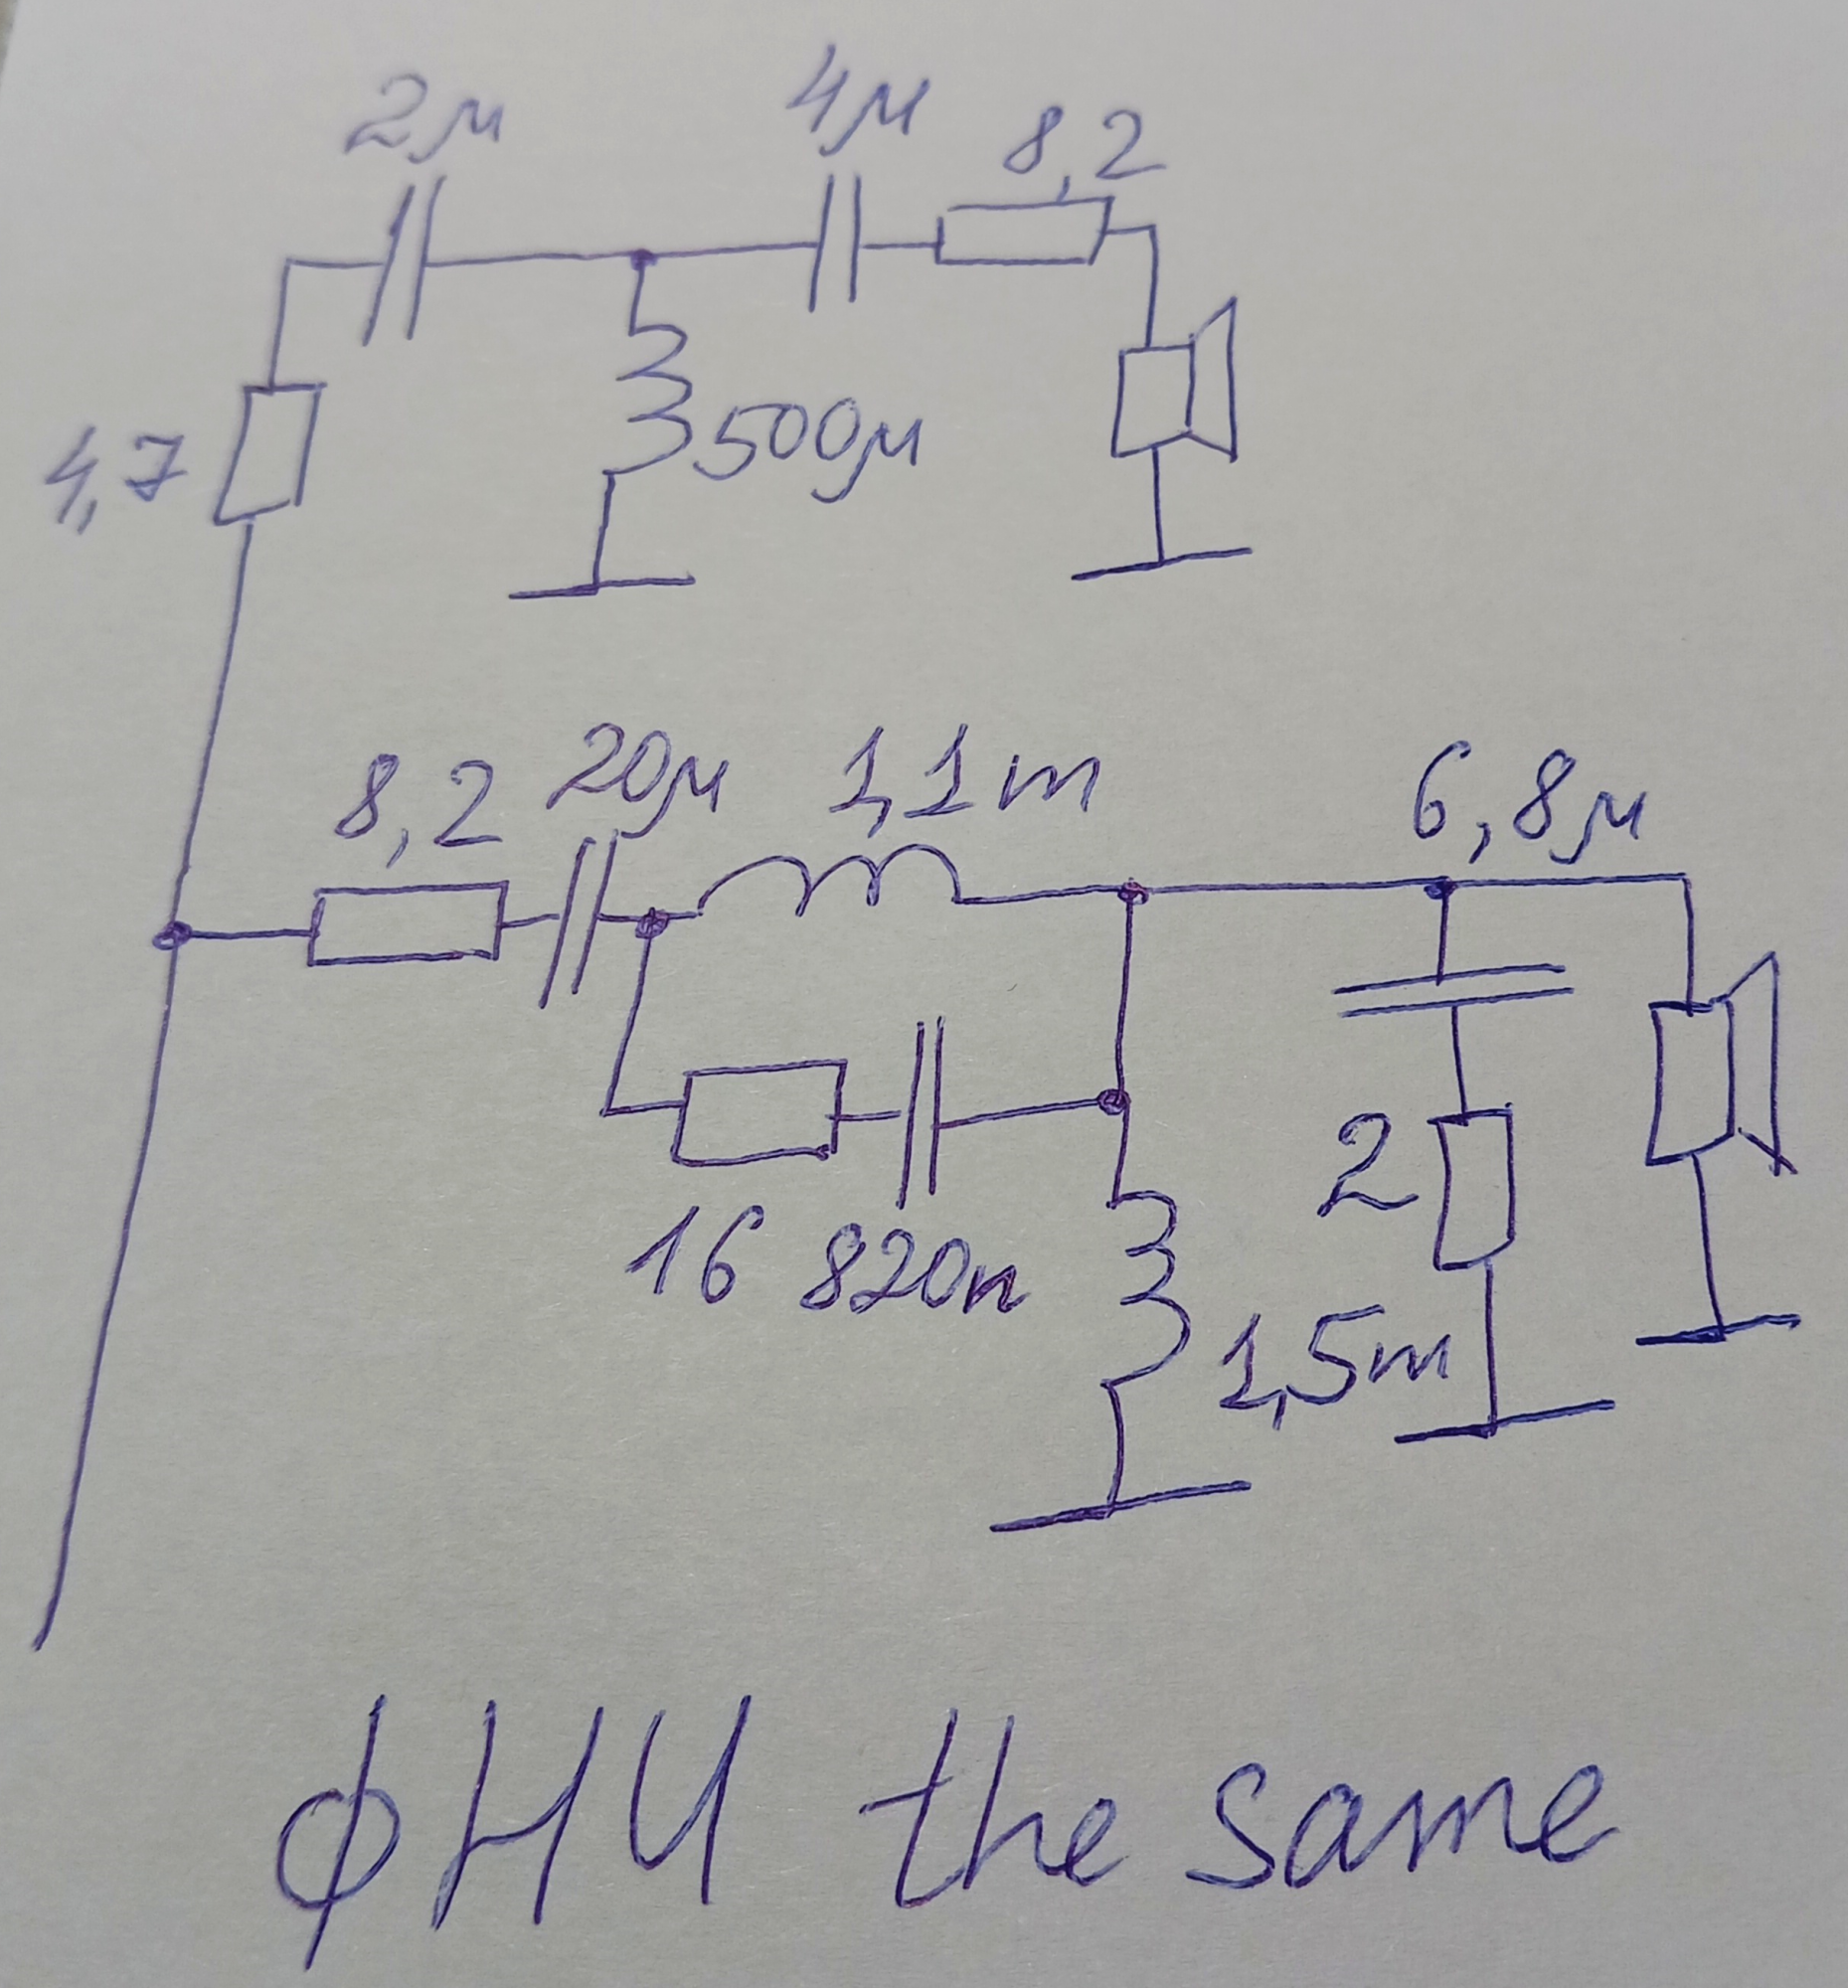 2μ 4μ 8,2
4,7 500μ
8,2 20μ 1,1m 6,8μ
16 820n 2
1,5m
ФНЧ the same